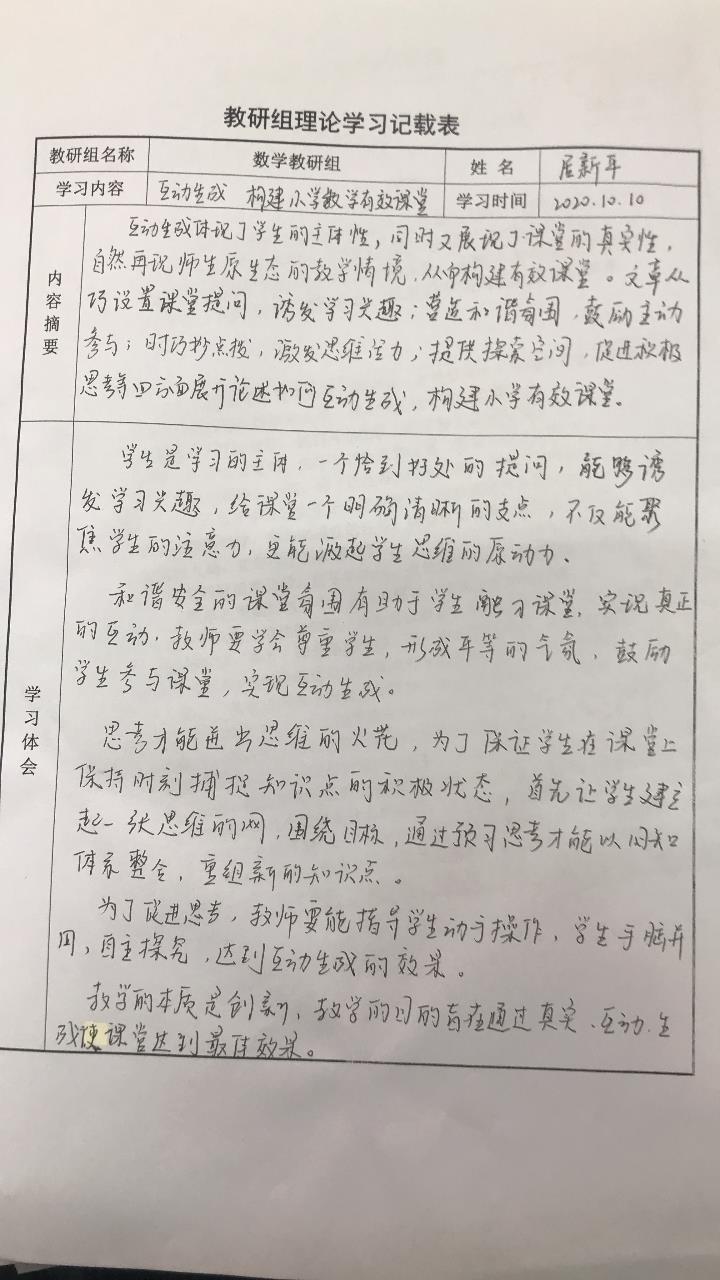 教研组理论学习记载表
教研组名称 数学教研组 姓 名 居新年
学习内容 互动生成 构建小学数学有效课堂 学习时间 2020.10.10
内容摘要
互动生成体现了学生的主体性，同时又展现了课堂的真实性，
自然再现师生原生态的教学情境，从而构建有效课堂。文章从
巧设置课堂提问，诱发学习兴趣；营造和谐氛围，鼓励主动
参与；时巧妙点拨，激发思维活力；提供探索空间，促进积极
思考等四方面展开论述如何互动生成，构建小学有效课堂。
学习体会
学生是学习的主体，一个恰到好处的提问，能够诱
发学习兴趣，给课堂一个明确清晰的支点，不仅能聚
焦学生的注意力，更能激起学生思维的原动力、
和谐安全的课堂氛围有助于学生融入课堂，实现真正
的互动．教师要学会尊重学生，形成平等的气氛、鼓励
学生参与课堂，实现互动生成。
思考才能迸出思维的火花，为了保证学生在课堂上
保持时刻捕捉知识点的积极状态，首先让学生建立
起一张思维的网，围绕目标，通过预习思考才能以旧知
体系整合，重组新的知识点。
为了促进思考，教师要能指导学生动手操作，学生手脑并
用，自主探究，达到互动生成的效果。
教学的本质是创新，教学的目的旨在通过真实、互动、生
成使课堂达到最佳效果。